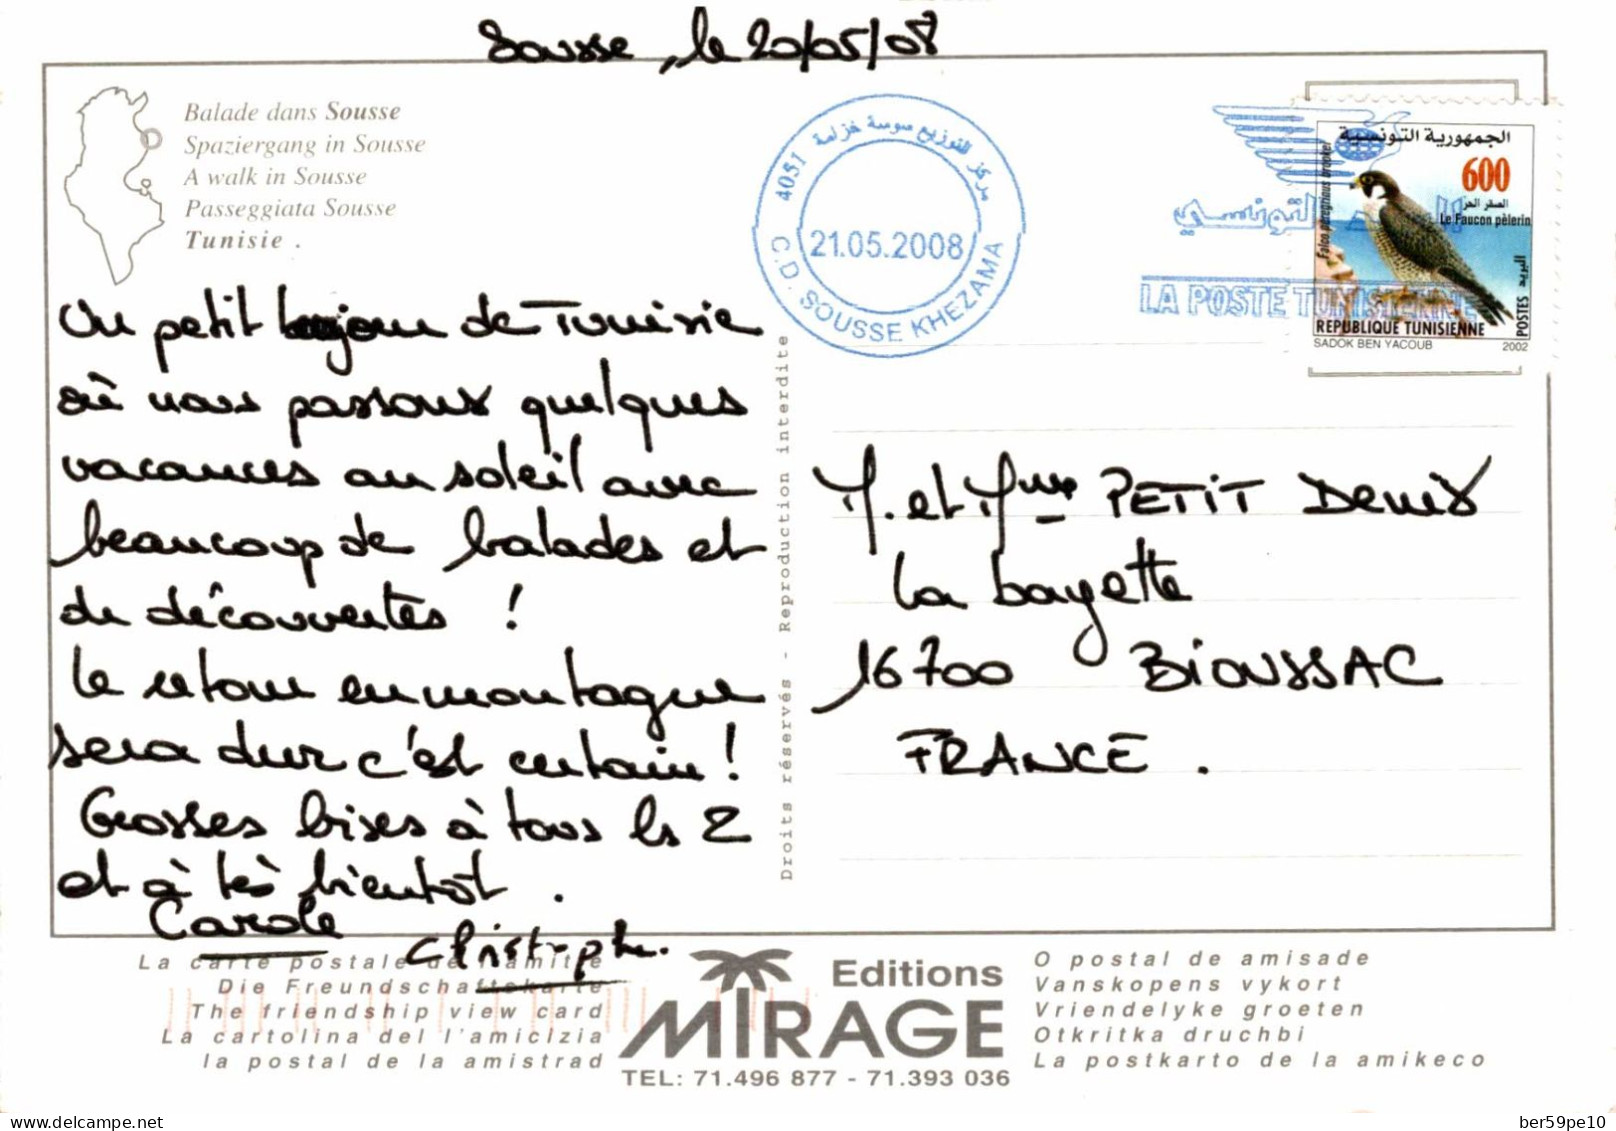 Sousse, le 20/05/08
Balade dans Sousse
Spaziergang in Sousse
A walk in Sousse
Passeggiata Sousse
Tunisie .
مركز التوزيع سوسة خزامة
4051
21.05.2008
C.D. SOUSSE KHEZAMA
التونسي
LA POSTE TUNISIENNE
الجمهورية التونسية
600
الصقر الحر
Le Faucon pèlerin
Falco peregrinus brookei
البريد
POSTES
REPUBLIQUE TUNISIENNE
SADOK BEN YACOUB 2002
Un petit bonjour de Tunisie
où nous passons quelques
vacances au soleil avec
beaucoup de balades et
de découvertes !
Le retour en montagne
sera dur c'est certain !
Grosses bises à tous les 2
et à très bientôt .
Carole
Christophe.
Droits réservés - Reproduction interdite
M. et Mme PETIT Denis
La bayette
16700 BIOUSSAC
FRANCE .
La carte postale de l'amitié
Die Freundschaftskarte
The friendship view card
La cartolina del l'amicizia
la postal de la amistrad
Editions
MIRAGE
TEL: 71.496 877 - 71.393 036
O postal de amisade
Vanskopens vykort
Vriendelyke groeten
Otkritka druchbi
La postkarto de la amikeco
ber59pe10